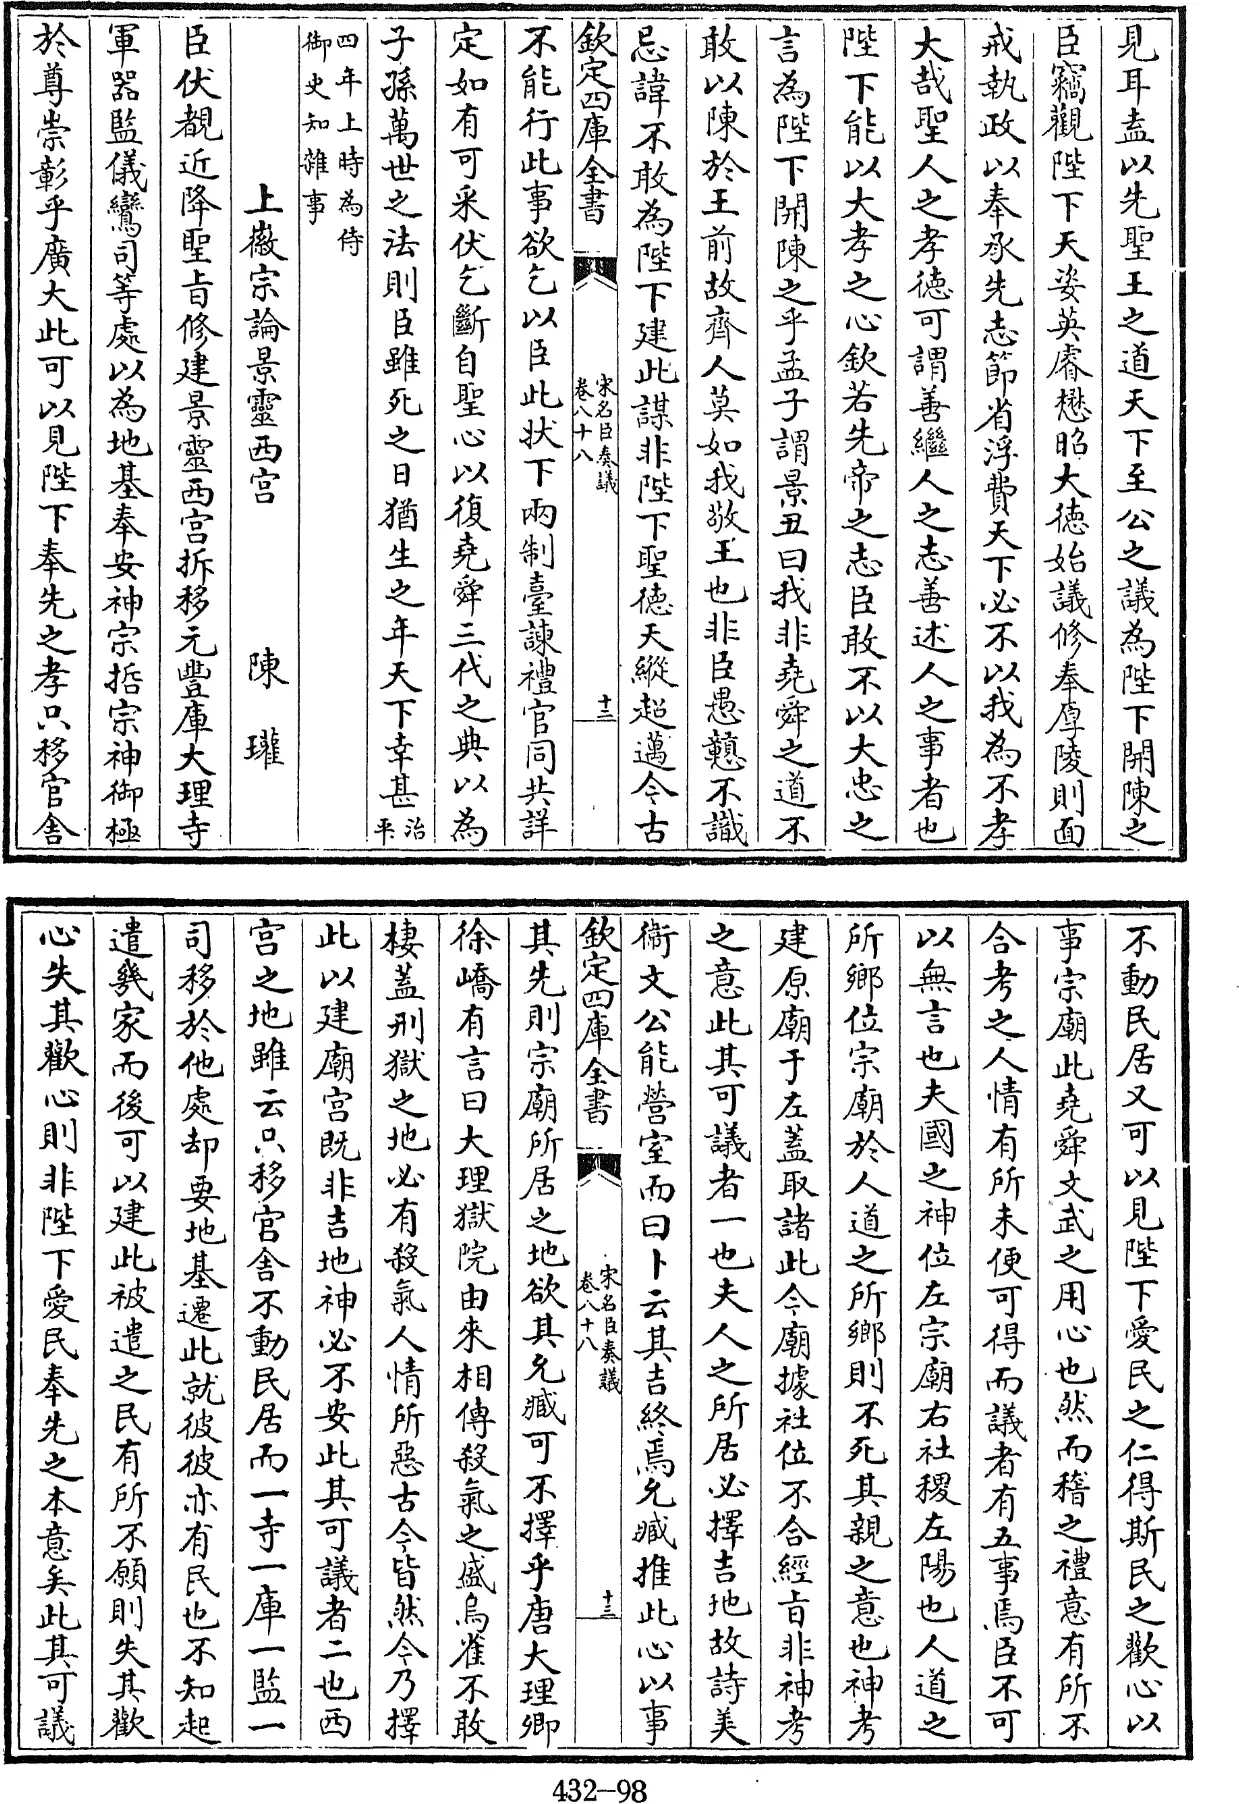 見耳盍以先聖王之道天下至公之議為陛下開陳之
臣竊觀陛下天姿英睿懋昭大徳始議修奉厚陵則面
戒執政以奉承先志節省浮費天下必不以我為不孝
大哉聖人之孝徳可謂善繼人之志善述人之事者也
陛下能以大孝之心欽若先帝之志臣敢不以大忠之
言為陛下開陳之乎孟子謂景丑曰我非堯舜之道不
敢以陳於王前故齊人莫如我敬王也非臣愚戇不識
忌諱不敢為陛下建此謀非陛下聖徳天縱超邁今古
欽定四庫全書
宋名臣奏議
卷八十八
十三
不能行此事欲乞以臣此狀下兩制臺諫禮官同共詳
定如有可采伏乞斷自聖心以復堯舜三代之典以為
子孫萬世之法則臣雖死之日猶生之年天下幸甚治平
四年上時為侍
御史知雜事
上徽宗論景靈西宫 陳瓘
臣伏覩近降聖旨修建景靈西宫拆移元豐庫大理寺
軍器監儀鸞司等處以為地基奉安神宗哲宗神御極
於尊崇彰乎廣大此可以見陛下奉先之孝只移官舎
不動民居又可以見陛下愛民之仁得斯民之歡心以
事宗廟此堯舜文武之用心也然而稽之禮意有所不
合考之人情有所未便可得而議者有五事焉臣不可
以無言也夫國之神位左宗廟右社稷左陽也人道之
所鄉位宗廟於人道之所鄉則不死其親之意也神考
建原廟于左蓋取諸此今廟據社位不合經旨非神考
之意此其可議者一也夫人之所居必擇吉地故詩美
衛文公能營室而曰卜云其吉終焉允臧推此心以事
欽定四庫全書
宋名臣奏議
卷八十八
十三
其先則宗廟所居之地欲其允臧可不擇乎唐大理卿
徐嶠有言曰大理獄院由來相傳殺氣之盛烏雀不敢
棲蓋刑獄之地必有殺氣人情所惡古今皆然今乃擇
此以建廟宫既非吉地神必不安此其可議者二也西
宫之地雖云只移官舎不動民居而一寺一庫一監一
司移於他處却要地基遷此就彼彼亦有民也不知起
遣幾家而後可以建此被遣之民有所不願則失其歡
心失其歡心則非陛下愛民奉先之本意矣此其可議
432-98